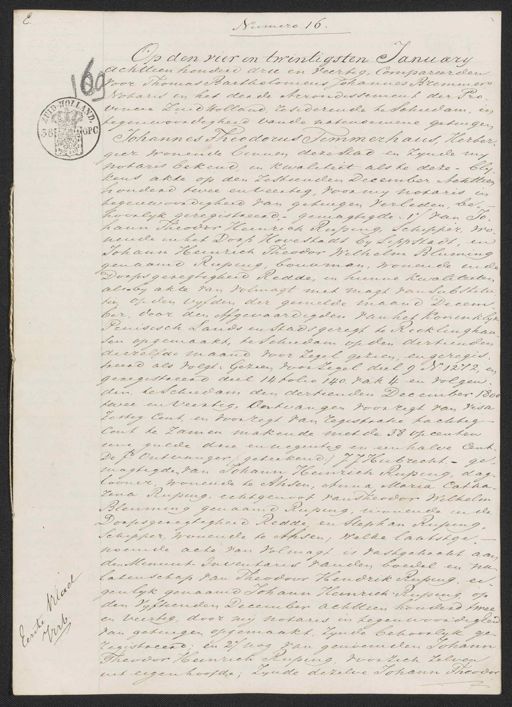 E.
Numero 16.
Op den vier en twintigsten January
achttien honderd drie en veertig, compareerden
voor Thomas Bartholomeus Johannes Bremmer
Notaris in het derde Arrondissement der Pro-
vincie Zuidholland, residerende te Schiedam, in
tegenwoordigheid van natenoemene getuigen
169
ZUID-HOLLAND.
38 OPC
Johannes Theodorus Timmerhaus, Herber-
gier wonende binnen deze stad en zynde my
notaris bekend, in kwaliteit als te dezen bly-
kens akte op den Zestienden December achttien
honderd twee en veertig, voor my notaris in
tegenwoordigheid van getuigen verleden, be-
hoorlyk geregistreerd, gemagtigde 1o van Jo-
hann Theodor Heinrich Rüping, Schipper, wo-
nende in het Dorp Hovestadt by Lippstadt, en
Johann Heinrich Theodor Wilhelm Blenning
genaamd Rüping, bouwman, wonende in de
Doorpsgeregtigheid Redde, hunne kwaliteiten
alsby akte van volmagt met magt van substitu-
tie op den vyfden der gemelde maand Decem-
ber, door den Afgevaardigden van het Koninklyk
Pruisisch Lands en Stadsgeregt te Recklinghau-
sen opgemaakt, te Schiedam op den dertienden
derzelfde maand voor Zegel gezien, en geregis-
treerd als volgt: Gezien voor Zegel deel 9 No 1272, en
geregistreerd deel 14 folio 140 vak 4 en volgen-
den te Schiedam den dertienden December 1800
twee en veertig. Ontvangen voor regt van visa
Zestig Cent, en voor regt van registratie tachtig
Cent te zamen makende met de 38 opcenten
een gulde drie en negentig en een halve Cent.
De Ontvanger (geteekend) J J Habrecht - ge-
magtigden van Johann Heinrich Rüping, dag-
looner, wonende te Ahsen, Anna Maria Catha-
rina Rüping, echtgenoot van Theodor Wilhelm
Blenning genaamd Rüping, wonende in de
Doorpsgeregtigheid Redde, en Stephan Rüping,
Schipper, wonende te Ahsen; welke laatstge-
noemde acte van volmagt is vastgehecht aan
den Minuut Inventaris van den boedel en na-
latenschap van Theodoor Hendrik Rüping, ei-
genlyk genaamd Johann Heinrich Rüping op
den vyftienden December achttien honderd twee
en veertig, door my notaris in tegenwoordigheid
van getuigen opgemaakt, zynde behoorlyk ge-
registreerd; en 2o nog van genoemden Johann
Theodor Heinrich Rüping voor zich zelven
uit eigen hoofde; zynde dezelve Johann Theodor
Eerste Blad